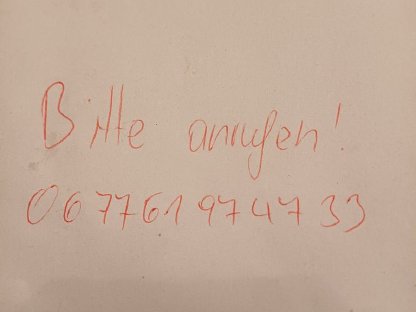 Bitte anrufen!
0677619747 33